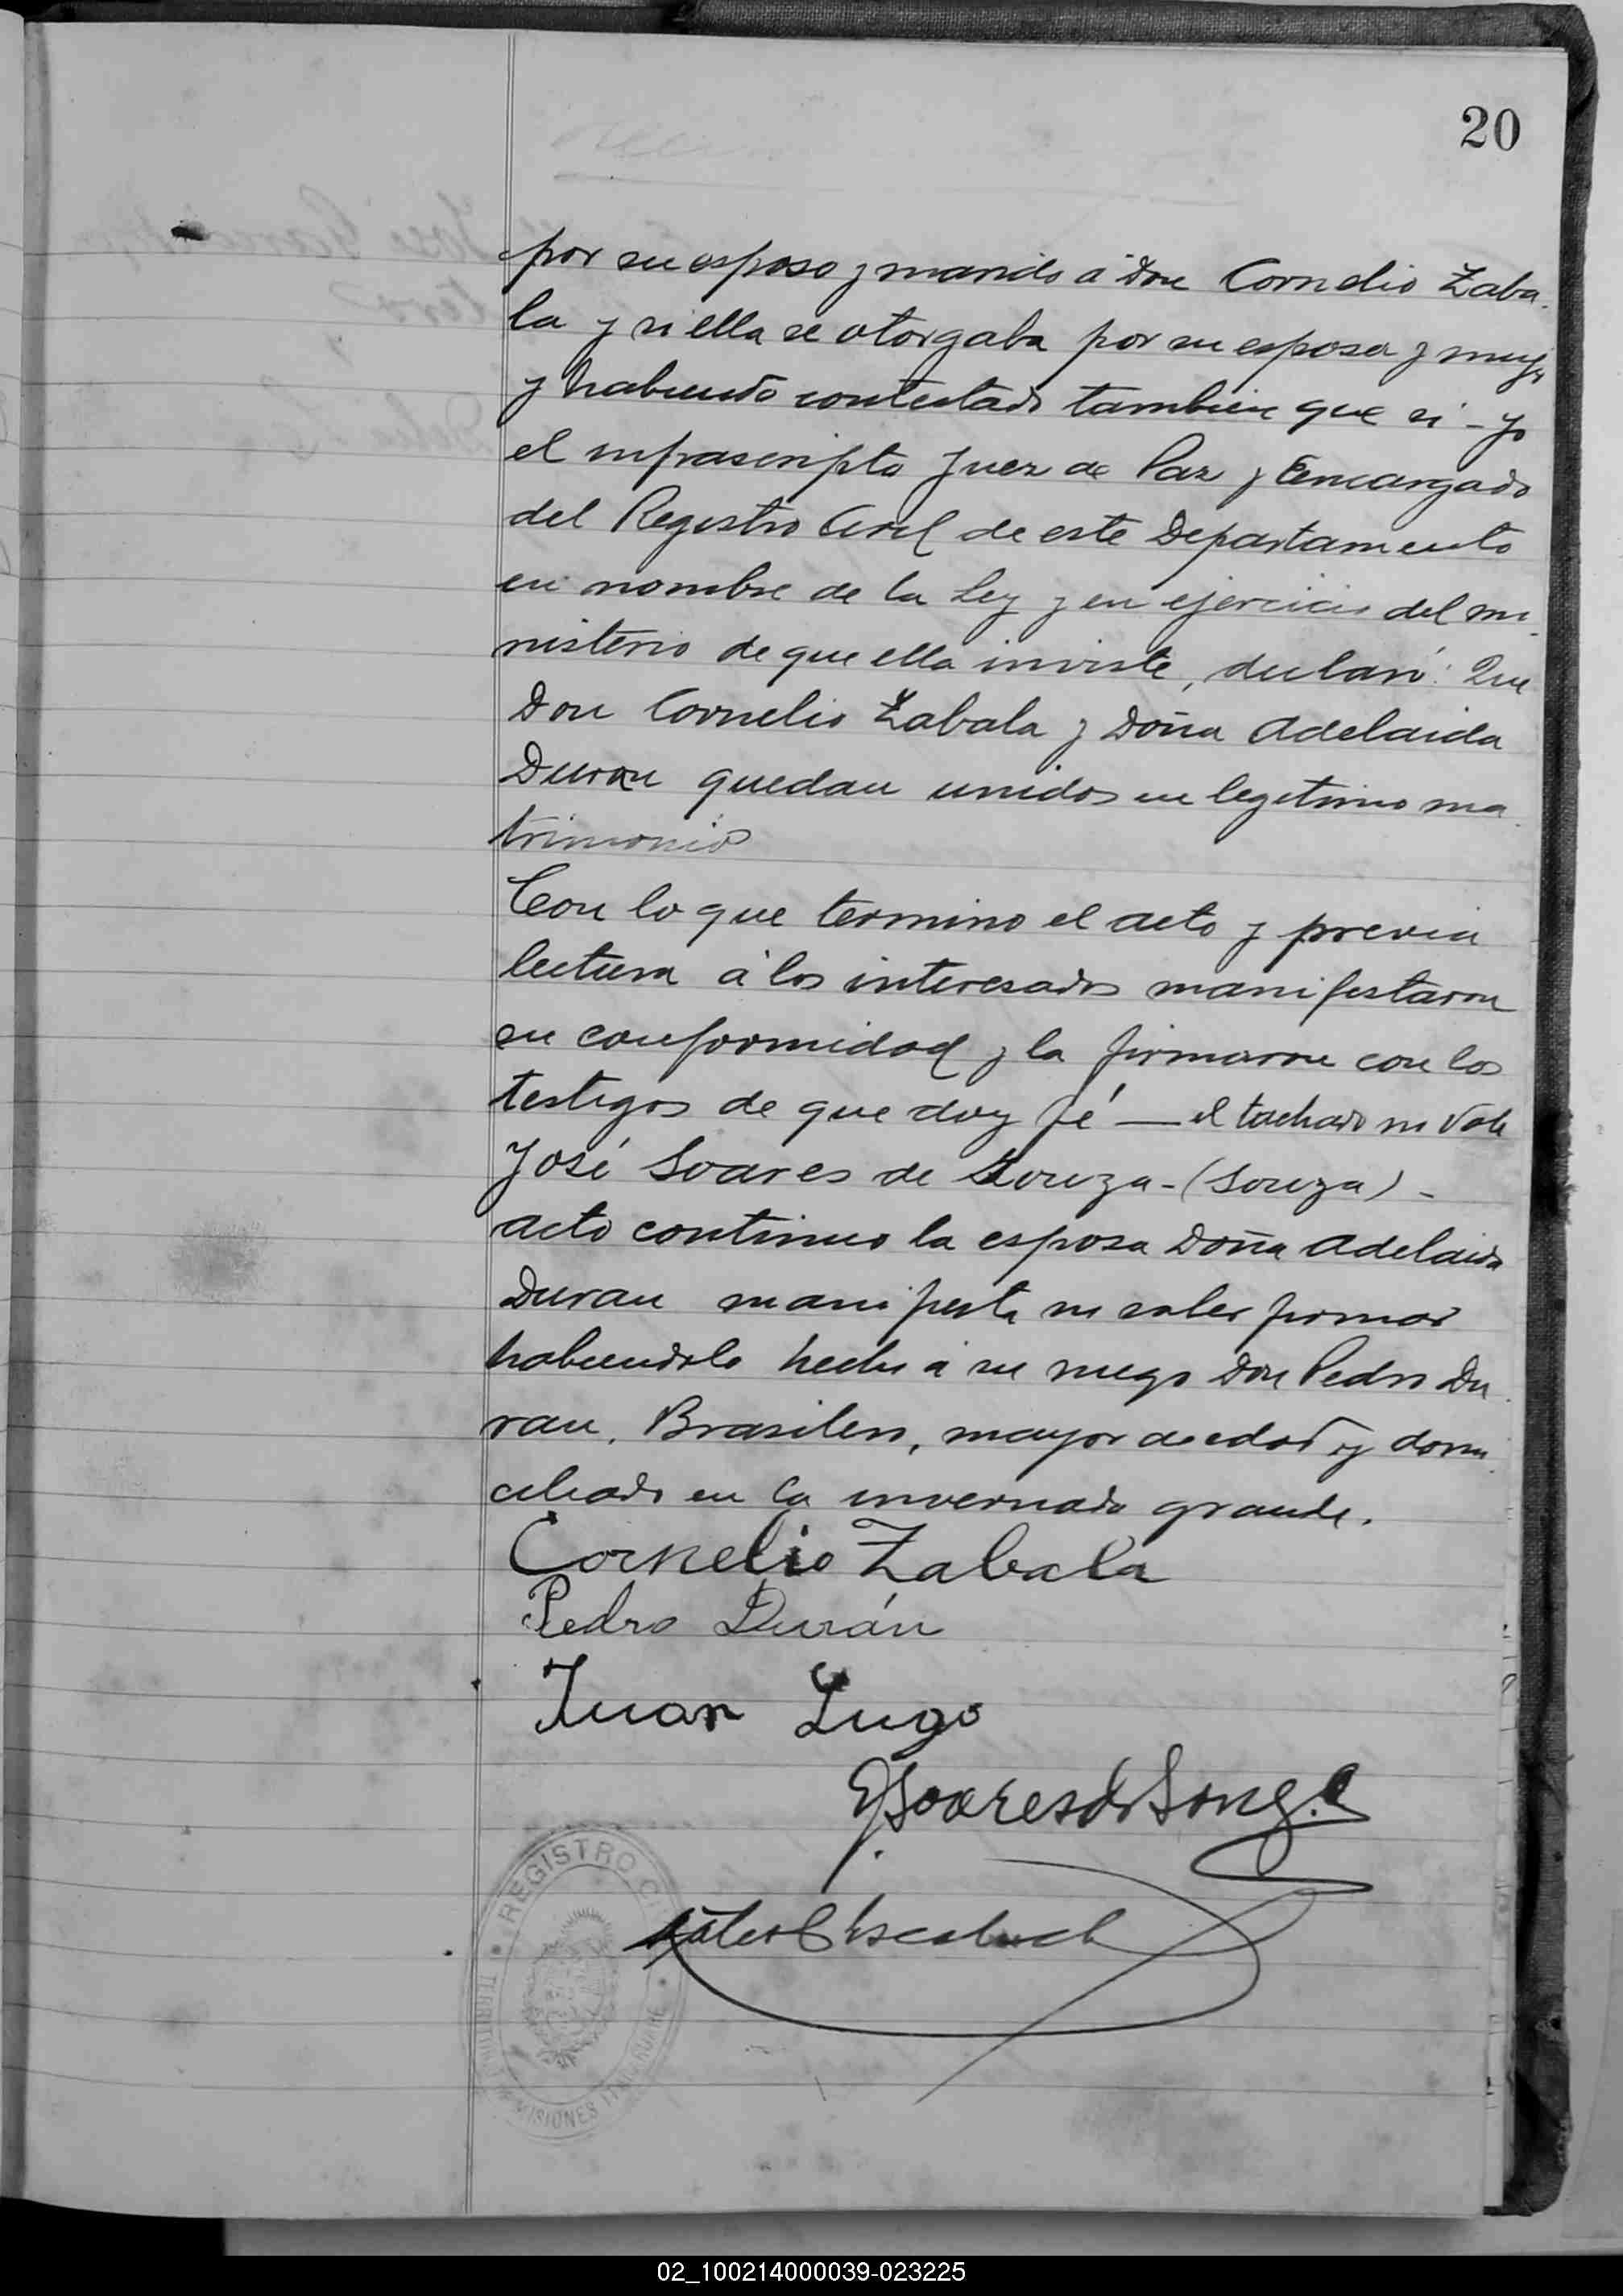 20
por su esposo y marido á Don Cornelio Zaba-
la y si ella se otorgaba por su esposa y mujr
y habiendo contestado tambien que si - yo
el infrascripto Juez de Paz y Encargado
del Registro Civil de este Departamento
en nombre de la Ley y en ejercicio del mi-
nisterio de que ella inviste, declaró: Que
Don Cornelio Zabala y Doña Adelaida
Duran quedan unidos en legitimo ma-
trimonio
Con lo que termino el acto y previa
lectura á los interesados manifestaron
su conformidad y la firmaron con los
testigos de que doy fé — el tachado no vale
José Soares de Souza - (Souza) -
acto continuo la esposa Doña Adelaida
Duran manifesta no saber firmar
habiendolo hecho á su ruego Don Pedro Du-
ran, Brasilero, mayor de edad y domi-
ciliado en la invernada grande.
Cornelio Zabala
Pedro Durán
Juan Lugo
JSoares de Souza
REGISTRO CI
TERRITO MISIONES ITACARUARE
02_100214000039-023225